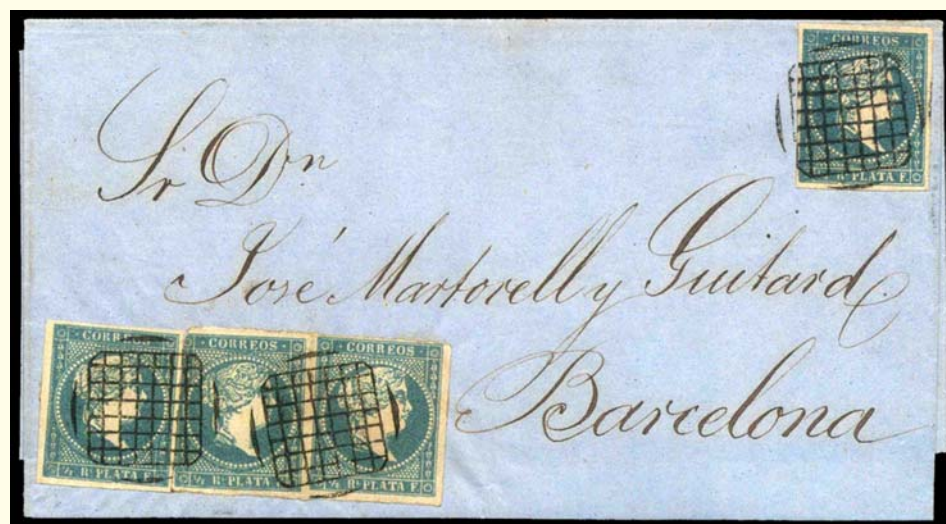 · CORREOS ·
Rl PLATA F.
Sr Dn
José Martorell y Guitard
Barcelona
· CORREOS · · CORREOS · · CORREOS ·
½ Rl PLATA F. ½ Rl PLATA F. ½ Rl PLATA F.